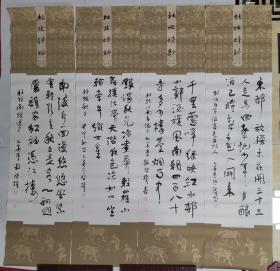 杜牧詩鈔
東都放榜未花開三十三
人走馬回秦地少年多釀
酒已將春色入關來
杜牧詩鈔
千里鶯啼綠映紅水村
山郭酒旗風南朝四百八十
寺多少樓台煙雨中
杜牧詩鈔
銀燭秋光冷畫屏輕羅小
扇撲流螢天階夜色涼如水坐
看牽牛織女星
杜牧詩鈔
南陵水面漫悠悠風緊
雲輕欲變秋正是客心孤迥
處誰家紅袖憑江樓